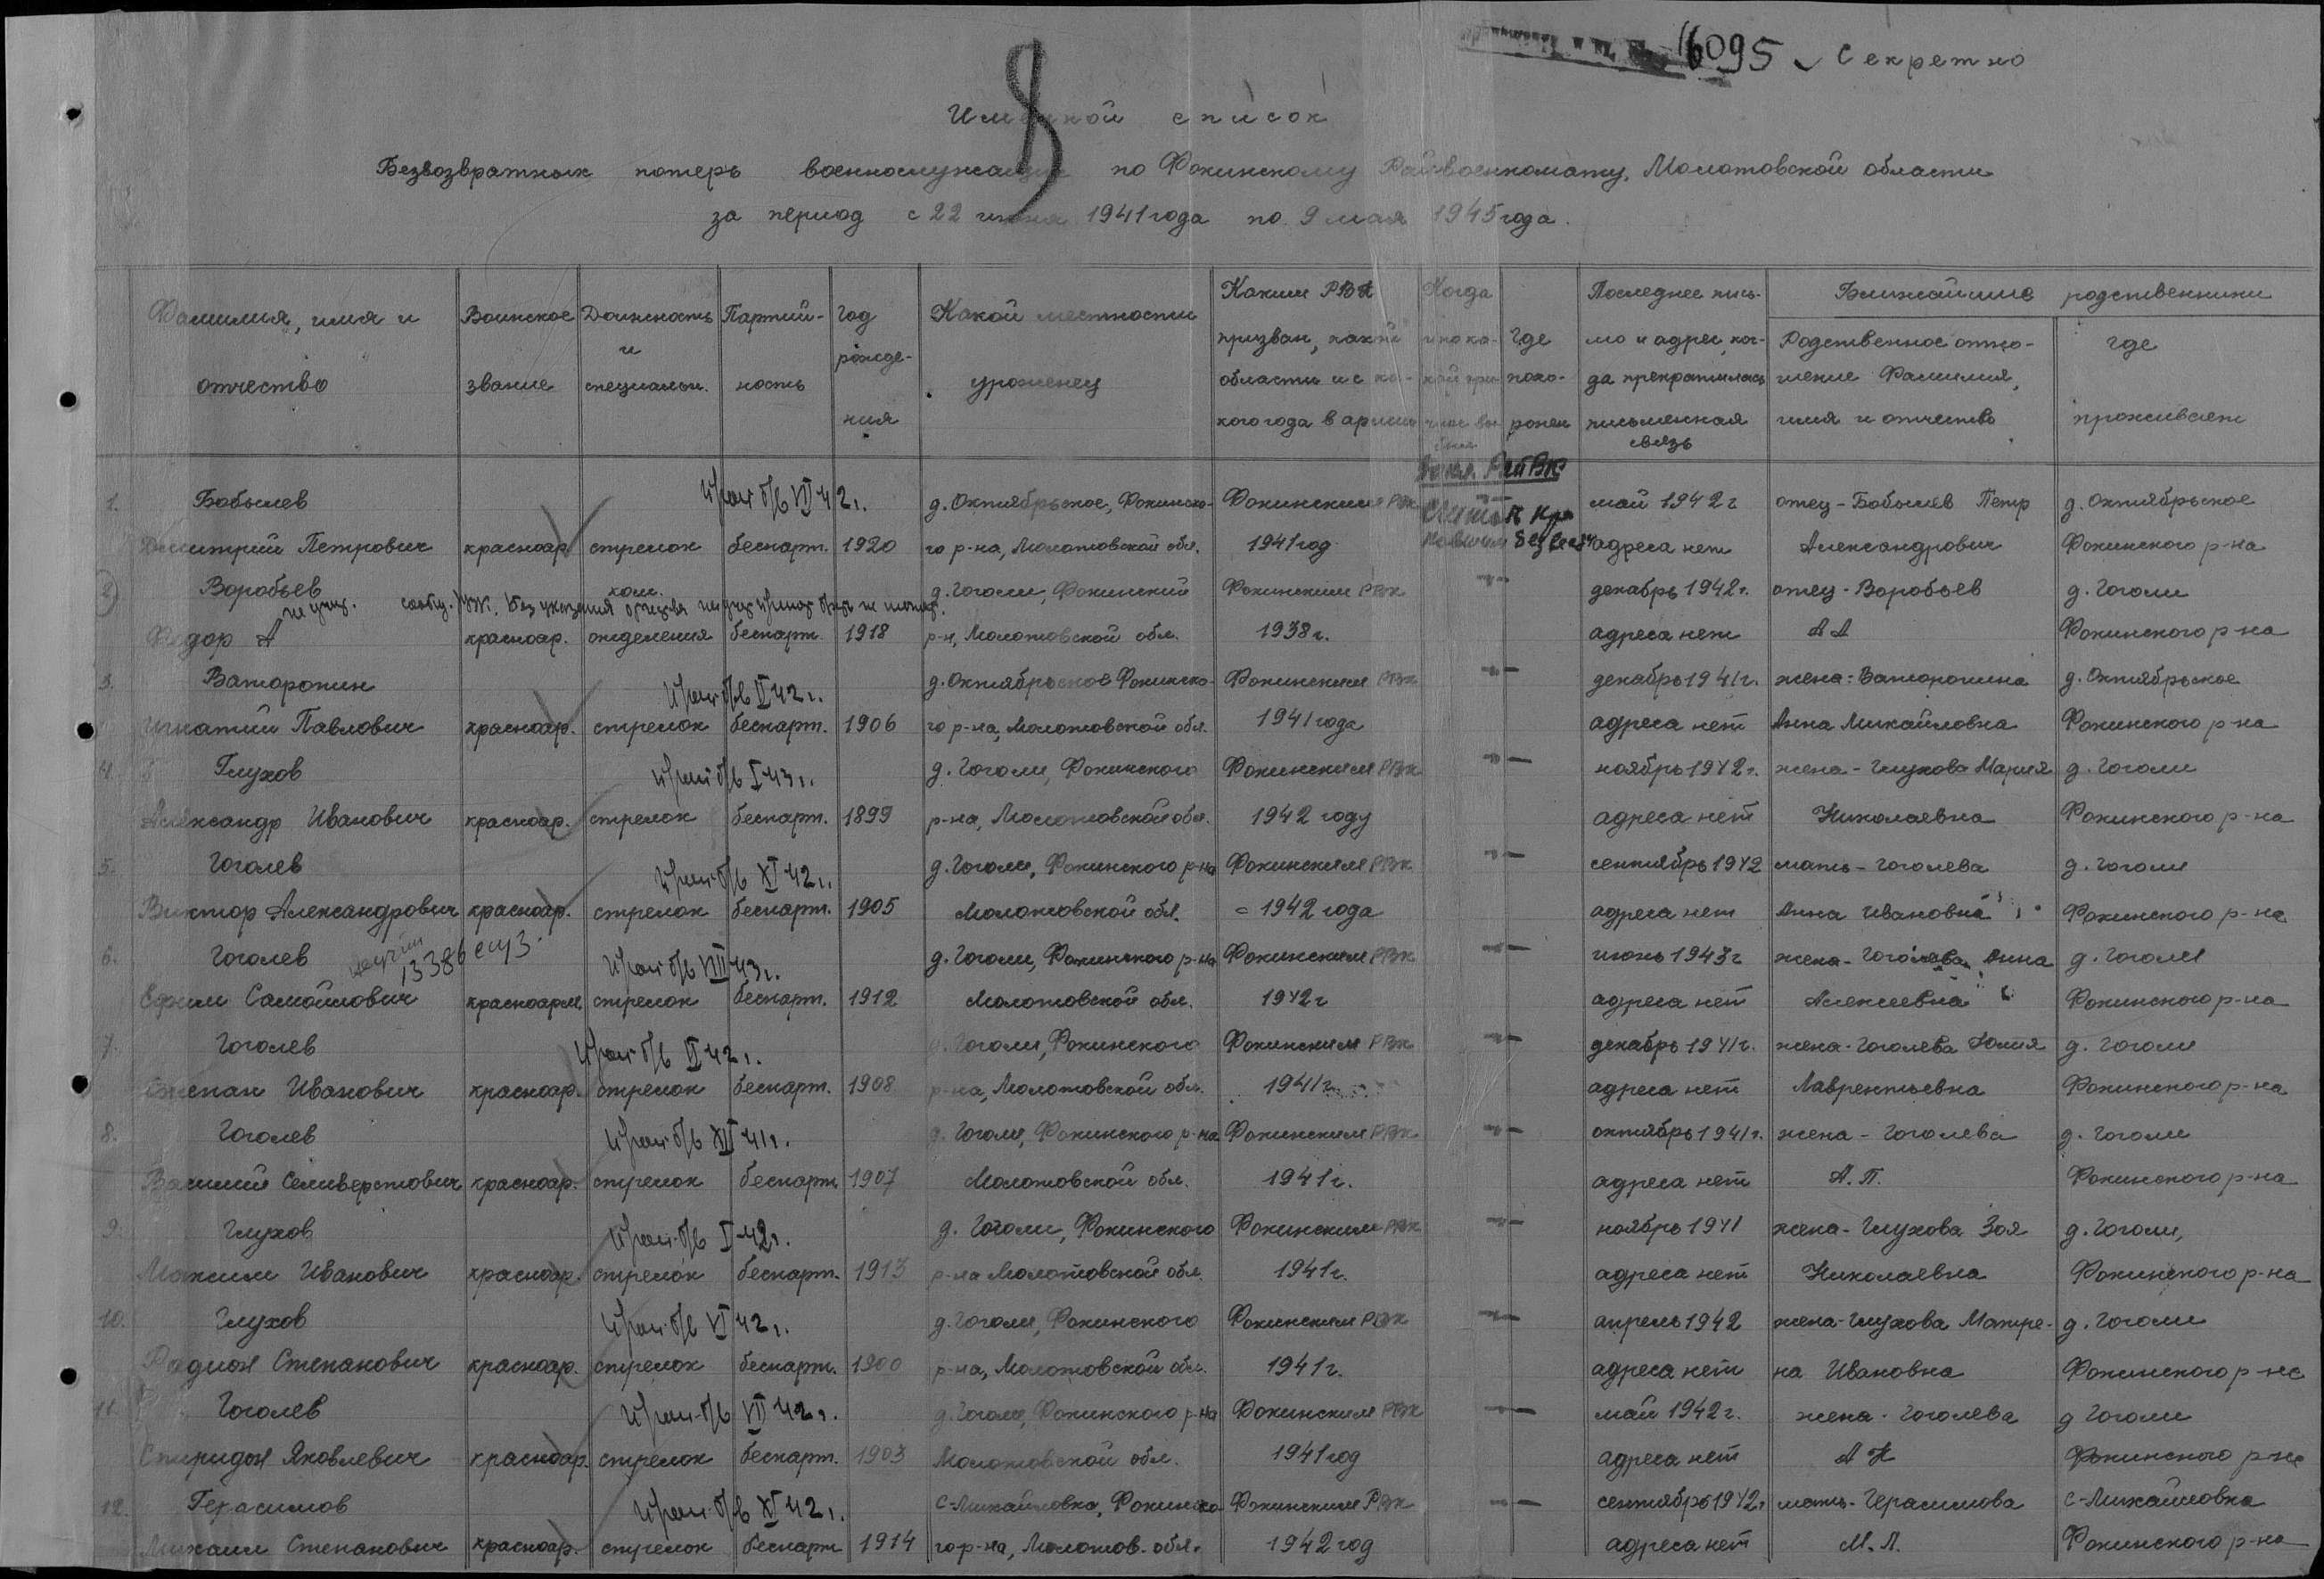 16095 Секретно
8
Именной список
Безвозвратных потерь военнослужащих по Фокинскому Райвоенкомату, Молотовской области
за период с 22 июня 1941 года по 9 мая 1945 года.
Фамилия, имя и отчество
Воинское звание
Должность и специальн.
Партий-ность
Год рожде-ния
Какой местности уроженец
Каким РВК призван, какой области и с ка-кого года в армии
Когда и по ка-кой при-чине вы-был
Где похо-ронен
Последнее пись-мо и адрес, ког-да прекратилась письменная связь
Ближайшие родственники
Родственное отно-шение Фамилия, имя и отчество
где проживает
1. Бобылев д. Октябрьское, Фокинско- Фокинским РВК май 1942 г отец - Бобылев Петр д. Октябрьское
б/в VII 42 г.
Дмитрий Петрович красноар. стрелок беспарт. 1920 го р-на, Молотовской обл. 1941 год адреса нет Александрович Фокинского р-на
2 Воробьев ком. д. Гоголи, Фокинский Фокинским РВК -"- декабрь 1942 г. отец - Воробьев д. Гоголи
Федор А красноар. отделения беспарт. 1918 р-н, Молотовской обл. 1938 г. адреса нет А А Фокинского р-на
3. Ваторопин д. Октябрьское Фокинско- Фокинским РВК -"- декабрь 1941 г. жена - Ваторопина д. Октябрьское
б/в II 42 г.
Игнатий Павлович красноар. стрелок беспарт. 1906 го р-на, Молотовской обл. 1941 года адреса нет Анна Михайловна Фокинского р-на
4. Глухов д. Гоголи, Фокинского Фокинским РВК -"- ноябрь 1942 г. жена - Глухова Мария д. Гоголи
б/в I 43 г.
Александр Иванович красноар. стрелок беспарт. 1899 р-на, Молотовской обл. 1942 году адреса нет Николаевна Фокинского р-на
5. Гоголев д. Гоголи, Фокинского р-на Фокинским РВК -"- сентябрь 1942 мать - Гоголева д. Гоголи
б/в XI 42 г.
Виктор Александрович красноар. стрелок беспарт. 1905 Молотовской обл. с 1942 года адреса нет Анна Ивановна Фокинского р-на
6. Гоголев 13386 д. Гоголи, Фокинского р-на Фокинским РВК -"- июнь 1943 г жена - Гоголева Анна д. Гоголи
б/в VIII 43 г.
Ефим Самойлович красноарм. стрелок беспарт. 1912 Молотовской обл. 1942 г адреса нет Алексеевна Фокинского р-на
7. Гоголев д. Гоголи, Фокинского Фокинским РВК -"- декабрь 1941 г. жена - Гоголева Юлия д. Гоголи
б/в II 42 г.
Степан Иванович красноар. стрелок беспарт. 1908 р-на, Молотовской обл. 1941 г. адреса нет Лаврентьевна Фокинского р-на
8. Гоголев д. Гоголи, Фокинского р-на Фокинским РВК -"- октябрь 1941 г. жена - Гоголева д. Гоголи
б/в XII 41 г.
Василий Селиверстович красноар. стрелок беспарт. 1907 Молотовской обл. 1941 г. адреса нет А. П. Фокинского р-на
9. Глухов д. Гоголи, Фокинского Фокинским РВК -"- ноябрь 1941 жена - Глухова Зоя д. Гоголи,
б/в I 42 г.
Максим Иванович красноар. стрелок беспарт. 1913 р-на Молотовской обл. 1941 г. адреса нет Николаевна Фокинского р-на
10. Глухов д. Гоголи, Фокинского Фокинским РВК -"- апрель 1942 жена - Глухова Матре- д. Гоголи
б/в VI 42 г.
Радион Степанович красноар. стрелок беспарт. 1900 р-на, Молотовской обл. 1941 г. адреса нет на Ивановна Фокинского р-на
11. Гоголев д. Гоголи, Фокинского р-на Фокинским РВК -"- май 1942 г. жена - Гоголева д Гоголи
б/в VII 42 г.
Спиридон Яковлевич красноар. стрелок беспарт. 1903 Молотовской обл. 1941 год адреса нет А Н Фокинского р-на
12. Герасимов с-Михайловка, Фокинско Фокинским РВК -"- сентябрь 1942 г мать - Герасимова с-Михайловка
б/в XI 42 г.
Михаил Степанович красноар. стрелок беспарт 1914 го р-на, Молотов. обл. 1942 год адреса нет М. Л. Фокинского р-на